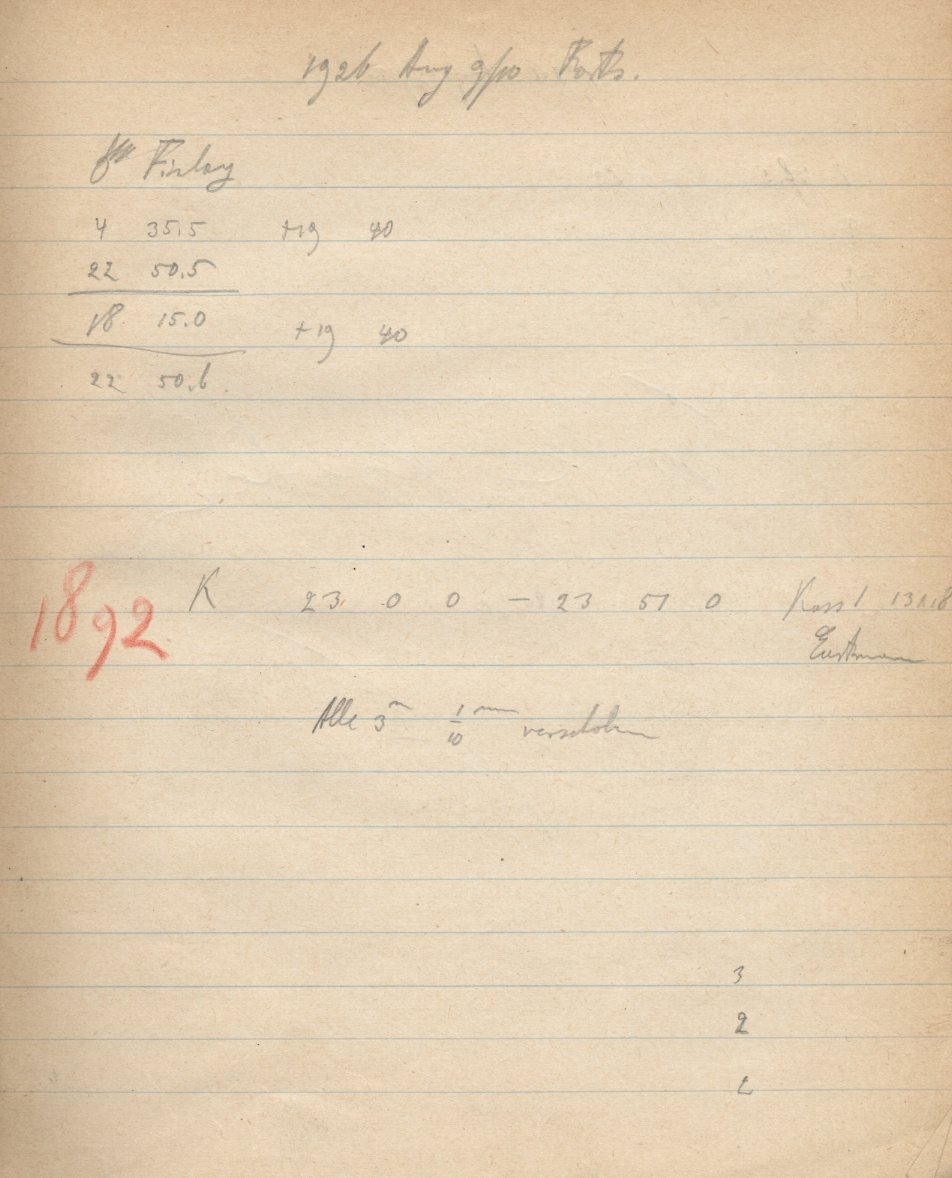 1926 Aug 9/10 Forts.
Finlay
4 35.5 +19 40
22 50.5
18 15.0 +19 40
22 50.6
1892
K 23 0 0 — 23 51 0 Kass 1 131.8
Eastman
Alle 3ᵐ 1/10 ᵐᵐ verschoben
3
2